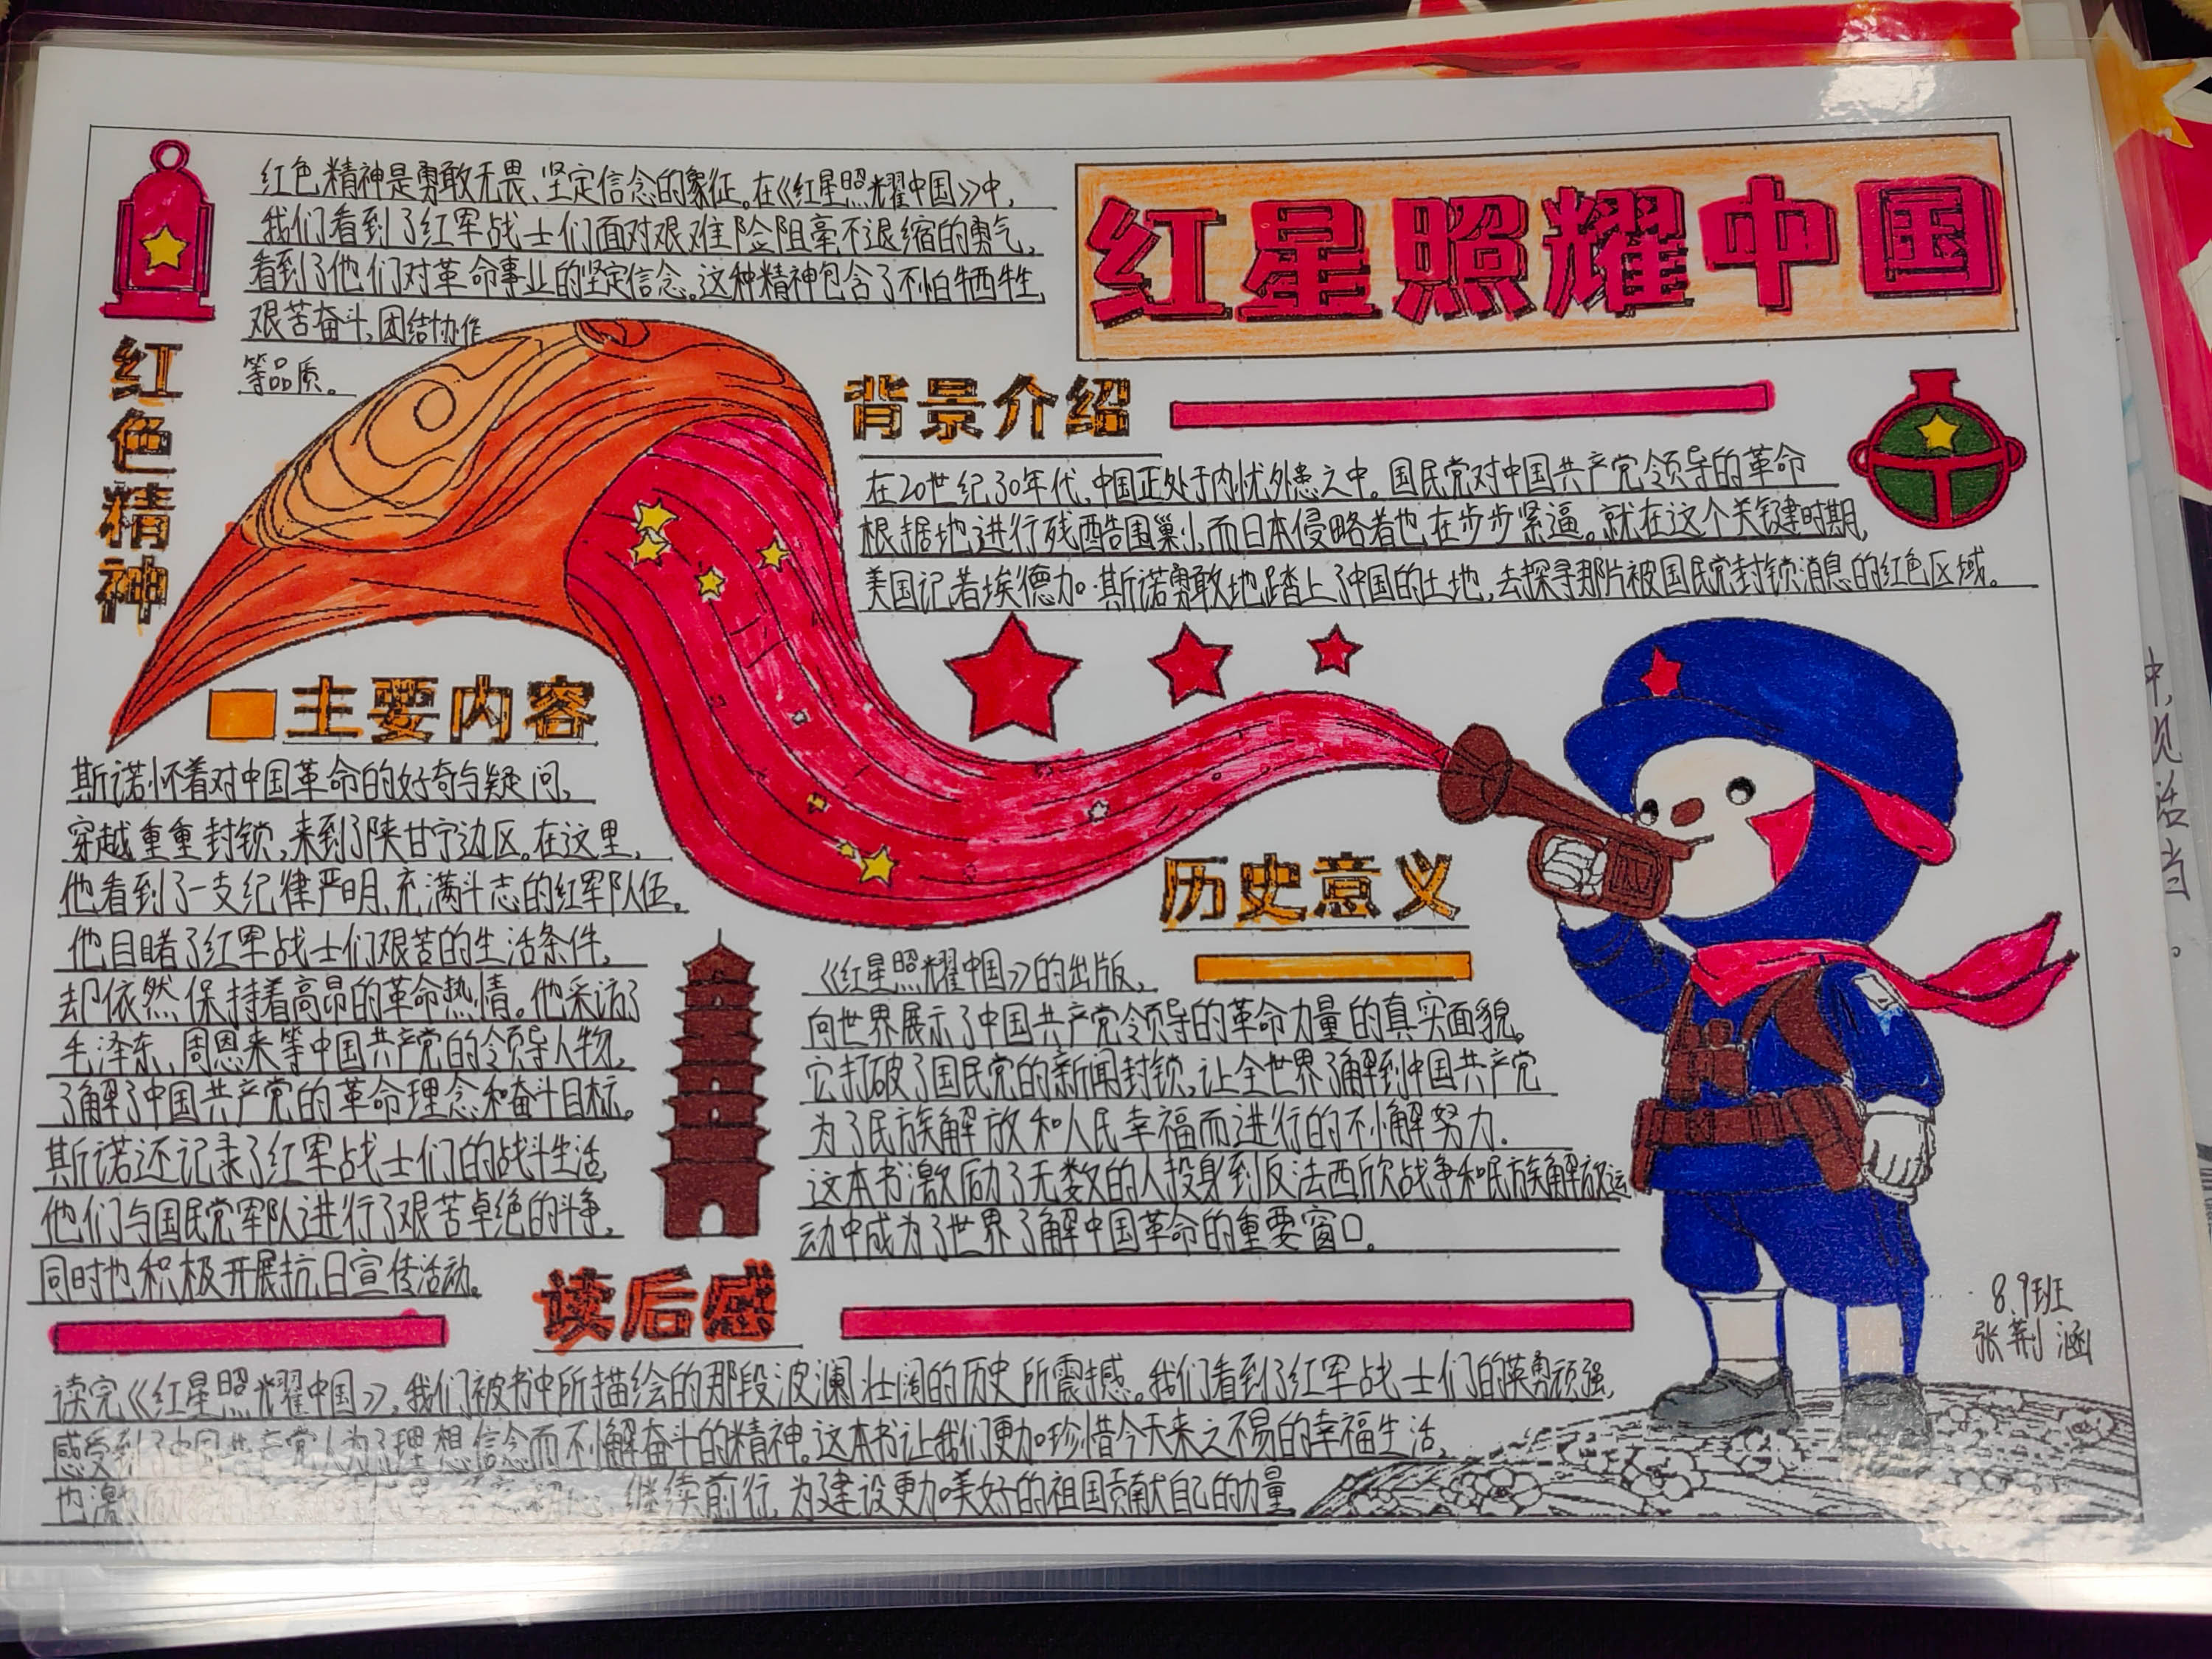 红星照耀中国
红色精神
红色精神是勇敢无畏、坚定信念的象征。在《红星照耀中国》中，
我们看到了红军战士们面对艰难险阻毫不退缩的勇气，
看到了他们对革命事业的坚定信念。这种精神包含了不怕牺牲，
艰苦奋斗，团结协作
等品质。
背景介绍
在20世纪30年代，中国正处于内忧外患之中。国民党对中国共产党领导的革命
根据地进行残酷围剿，而日本侵略者也在步步紧逼。就在这个关键时期，
美国记者埃德加。斯诺勇敢地踏上了中国的土地，去探寻那片被国民党封锁消息的红色区域。
主要内容
斯诺怀着对中国革命的好奇与疑问，
穿越重重封锁，来到了陕甘宁边区。在这里，
他看到了一支纪律严明，充满斗志的红军队伍。
他目睹了红军战士们艰苦的生活条件，
却依然保持着高昂的革命热情。他采访了
毛泽东，周恩来等中国共产党的领导人物，
了解了中国共产党的革命理念和奋斗目标。
斯诺还记录了红军战士们的战斗生活，
他们与国民党军队进行了艰苦卓绝的斗争，
同时也积极开展抗日宣传活动。
历史意义
《红星照耀中国》的出版，
向世界展示了中国共产党领导的革命力量的真实面貌。
它打破了国民党的新闻封锁，让全世界了解到中国共产党
为了民族解放和人民幸福而进行的不懈努力.
这本书激励了无数的人投身到反法西欣战争和民族解放运
动中成为了世界了解中国革命的重要窗口。
读后感
读完《红星照耀中国》，我们被书中所描绘的那段波澜壮阔的历史所震撼。我们看到了红军战士们的英勇顽强，
感受到了中国共产党人为了理想信念而不懈奋斗的精神。这本书让我们更加珍惜今天来之不易的幸福生活，
也激励 继续前行，为建设更加美好的祖国贡献自己的力量
8.9班
张荆涵